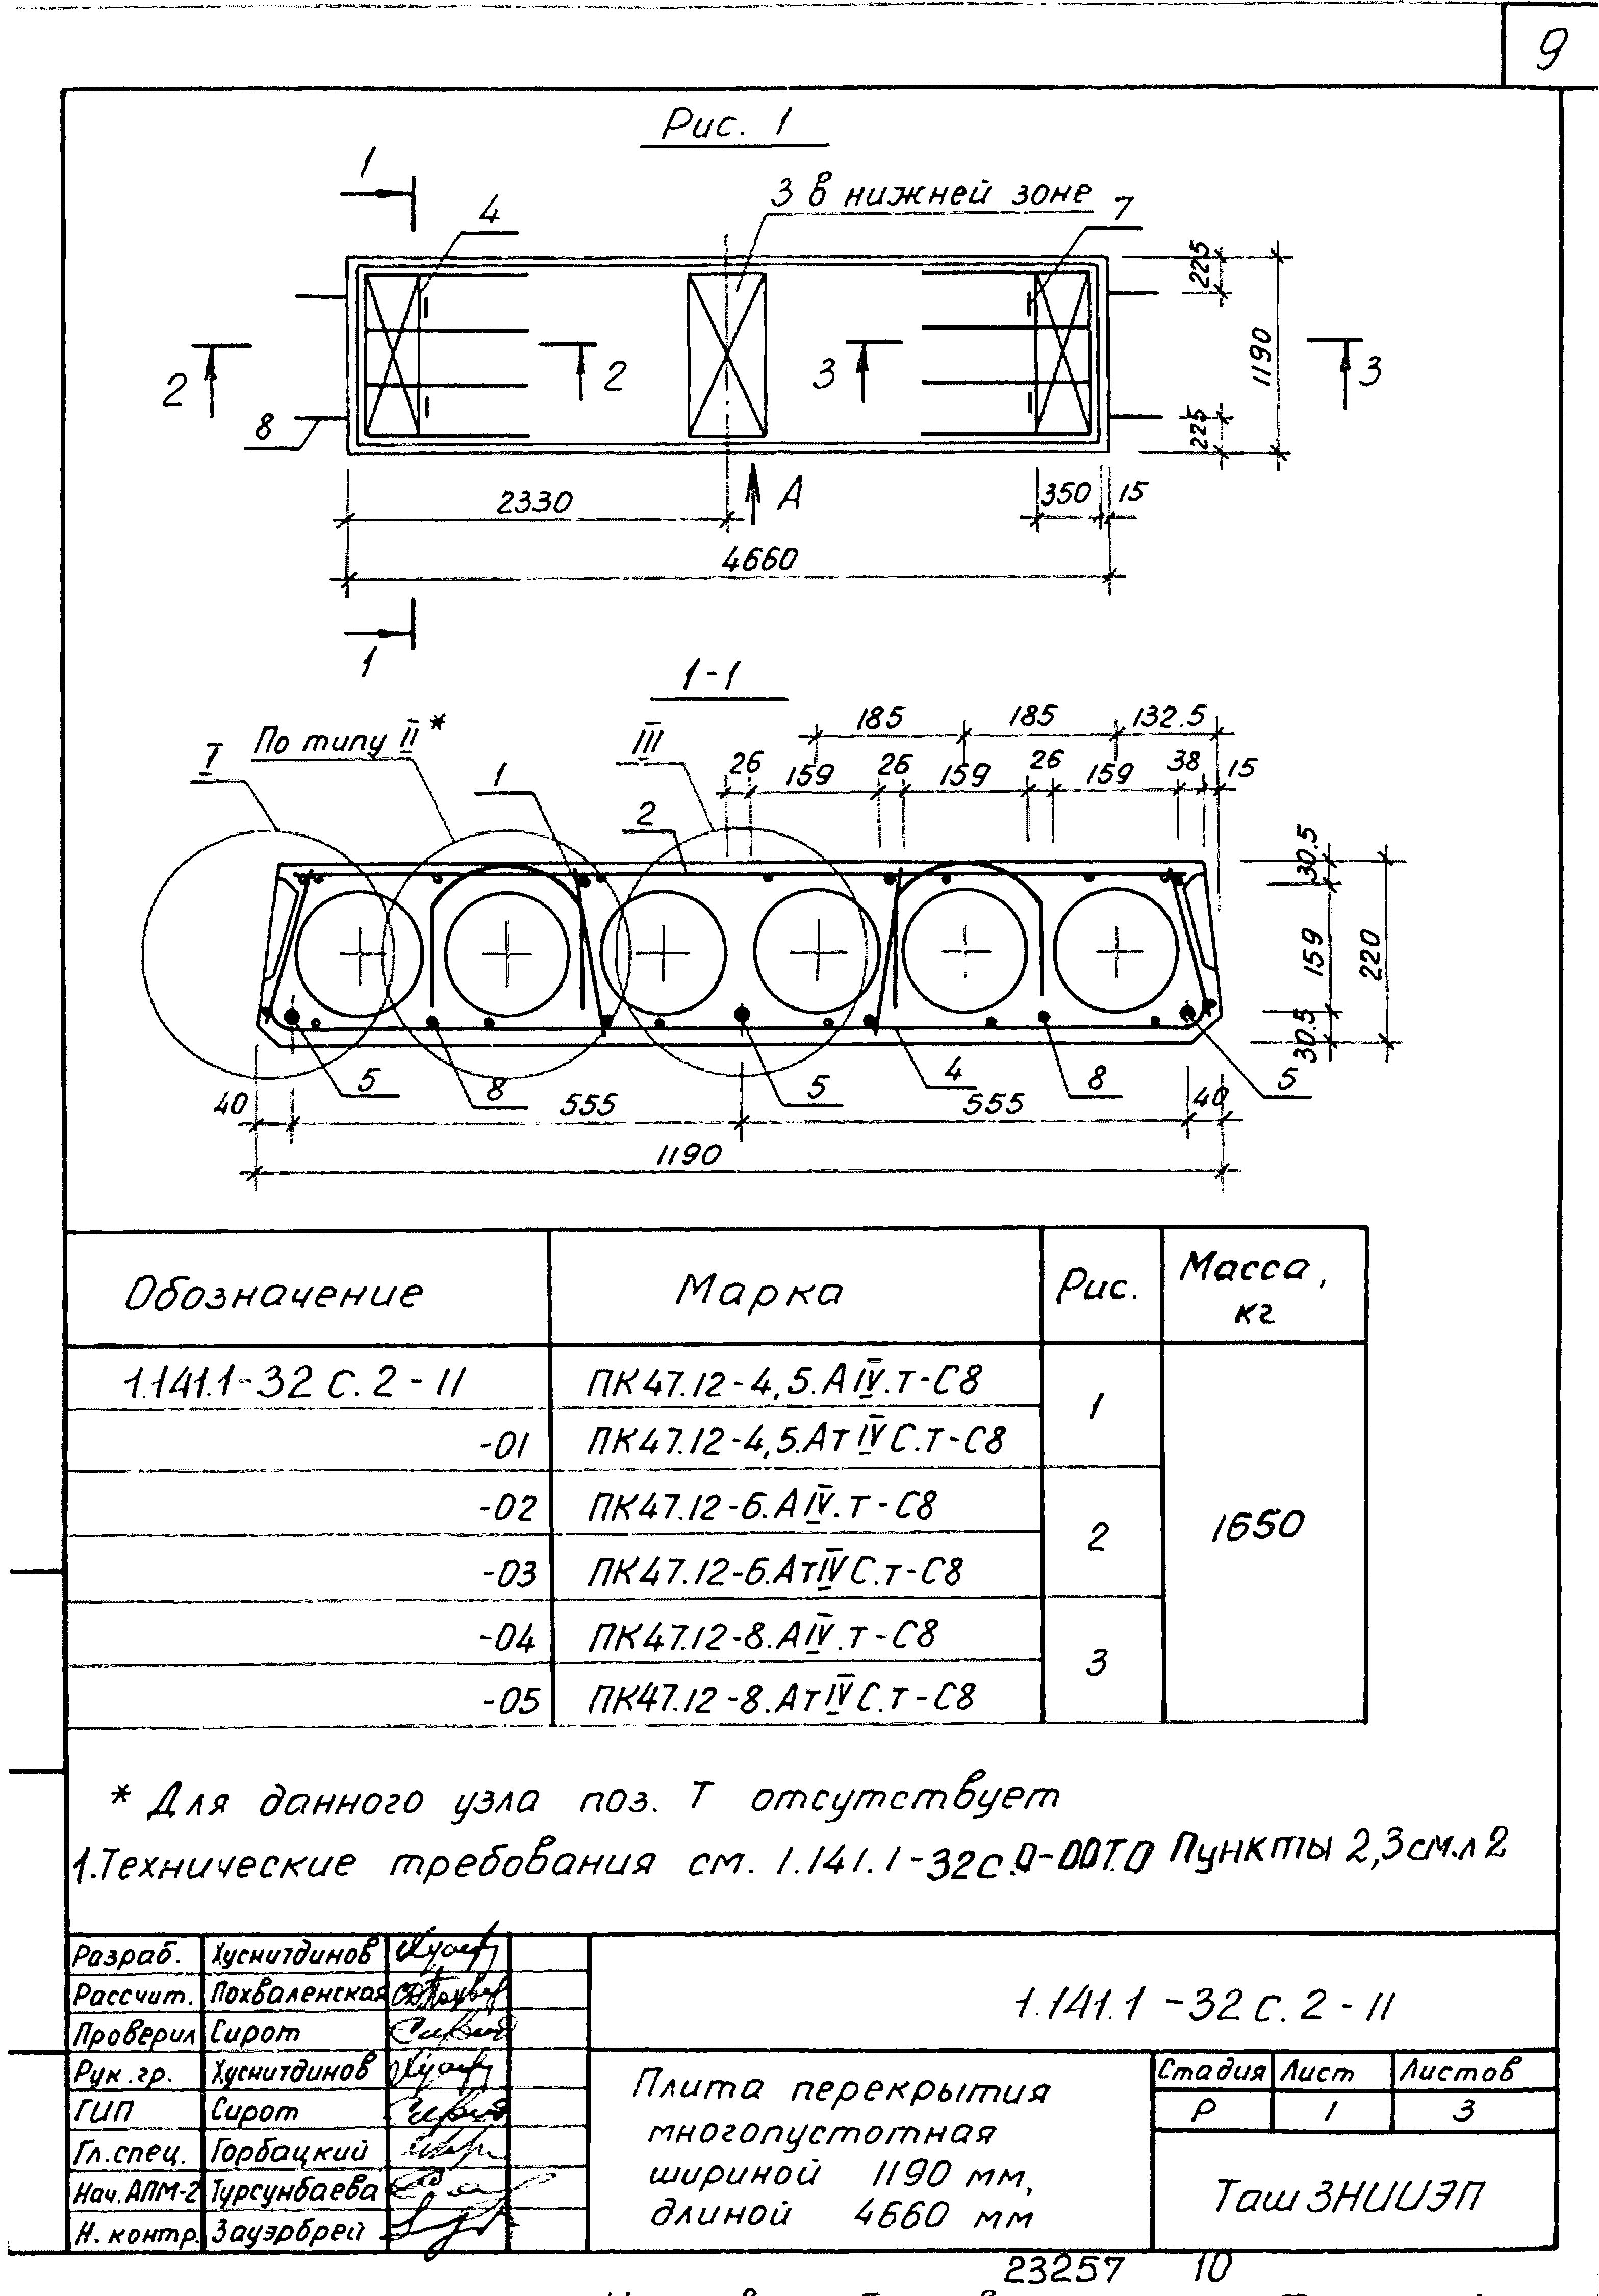 9
Рис. 1
1
4
3 в нижней зоне
7
225
1190
225
2
2
3
3
8
2330
А
350
15
4660
1
1-1
I
По типу II*
III
185
185
132.5
26
159
26
159
26
159
38
15
1
2
30.5
159
220
30.5
5
8
5
4
8
5
40
555
555
40
1190
Обозначение Марка Рис. Масса, кг
1.141.1-32 с. 2-11 ПК47.12-4,5.АIV.т-С8 1
-01 ПК47.12-4,5.АтIVС.т-С8
-02 ПК47.12-6.АIV.т-С8 2 1650
-03 ПК47.12-6.АтIVС.т-С8
-04 ПК47.12-8.АIV.т-С8 3
-05 ПК47.12-8.АтIVС.т-С8
* Для данного узла поз. Т отсутствует
1.Технические требования см. 1.141.1-32с.0-00Т.0 Пункты 2,3 см.л 2
Разраб. Хуснитдинов
Рассчит. Похваленская
Проверил Сирот
Рук. гр. Хуснитдинов
ГИП Сирот
Гл. спец. Горбацкий
Нач. АПМ-2 Турсунбаева
Н. контр. Зауэрбрей
1.141.1-32 с. 2-11
Плита перекрытия
многопустотная
шириной 1190 мм,
длиной 4660 мм
Стадия Лист Листов
Р 1 3
ТашЗНИИЭП
23257 10